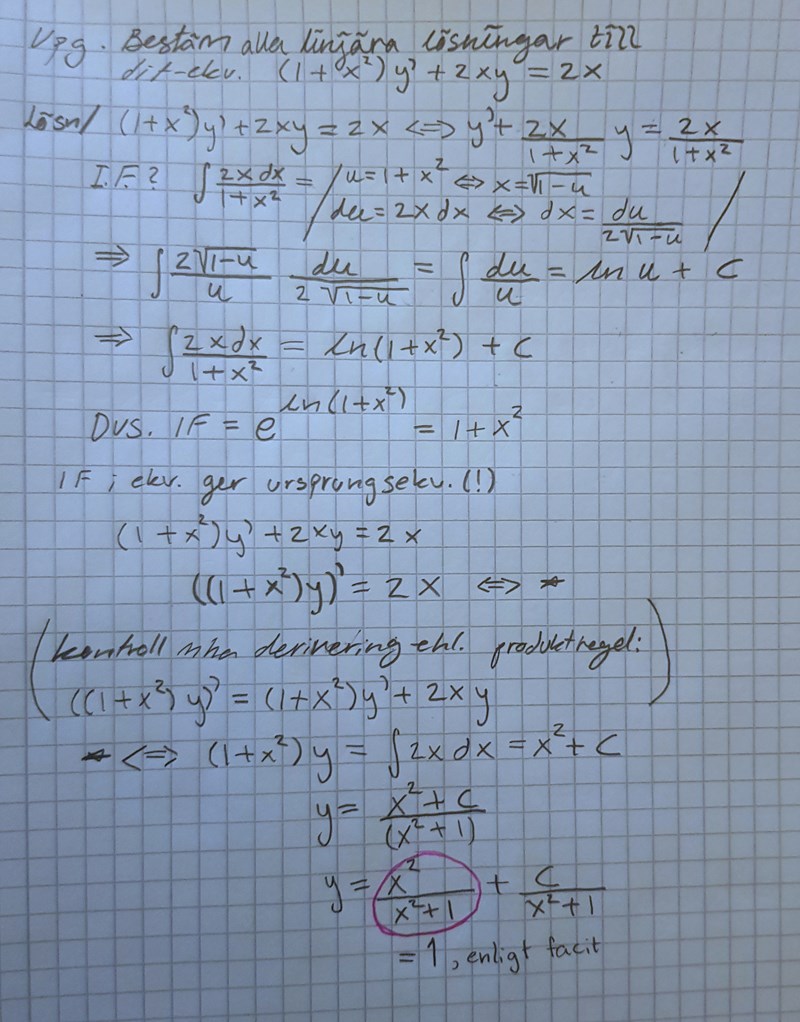 Upg. Bestäm alla linjära lösningar till
dif-ekv. (1+x²)y' + 2xy = 2x
Lösn/ (1+x²)y' + 2xy = 2x <=> y' + 2x/(1+x²) y = 2x/(1+x²)
I.F.? ∫ 2x dx/(1+x²) = / u = 1+x² <=> x = √(1-u)
du = 2x dx <=> dx = du/(2√(1-u)) /
=> ∫ 2√(1-u)/u du/(2√(1-u)) = ∫ du/u = ln u + C
=> ∫ 2x dx/(1+x²) = ln(1+x²) + C
Dvs. IF = e^(ln(1+x²)) = 1+x²
IF i ekv. ger ursprungsekv. (!)
(1+x²)y' + 2xy = 2x
((1+x²)y)' = 2x <=> *
(kontroll mha derivering enl. produktregel:
((1+x²)y)' = (1+x²)y' + 2xy)
* <=> (1+x²)y = ∫ 2x dx = x² + C
y = (x² + C)/(x² + 1)
y = x²/(x²+1) + C/(x²+1)
= 1, enligt facit